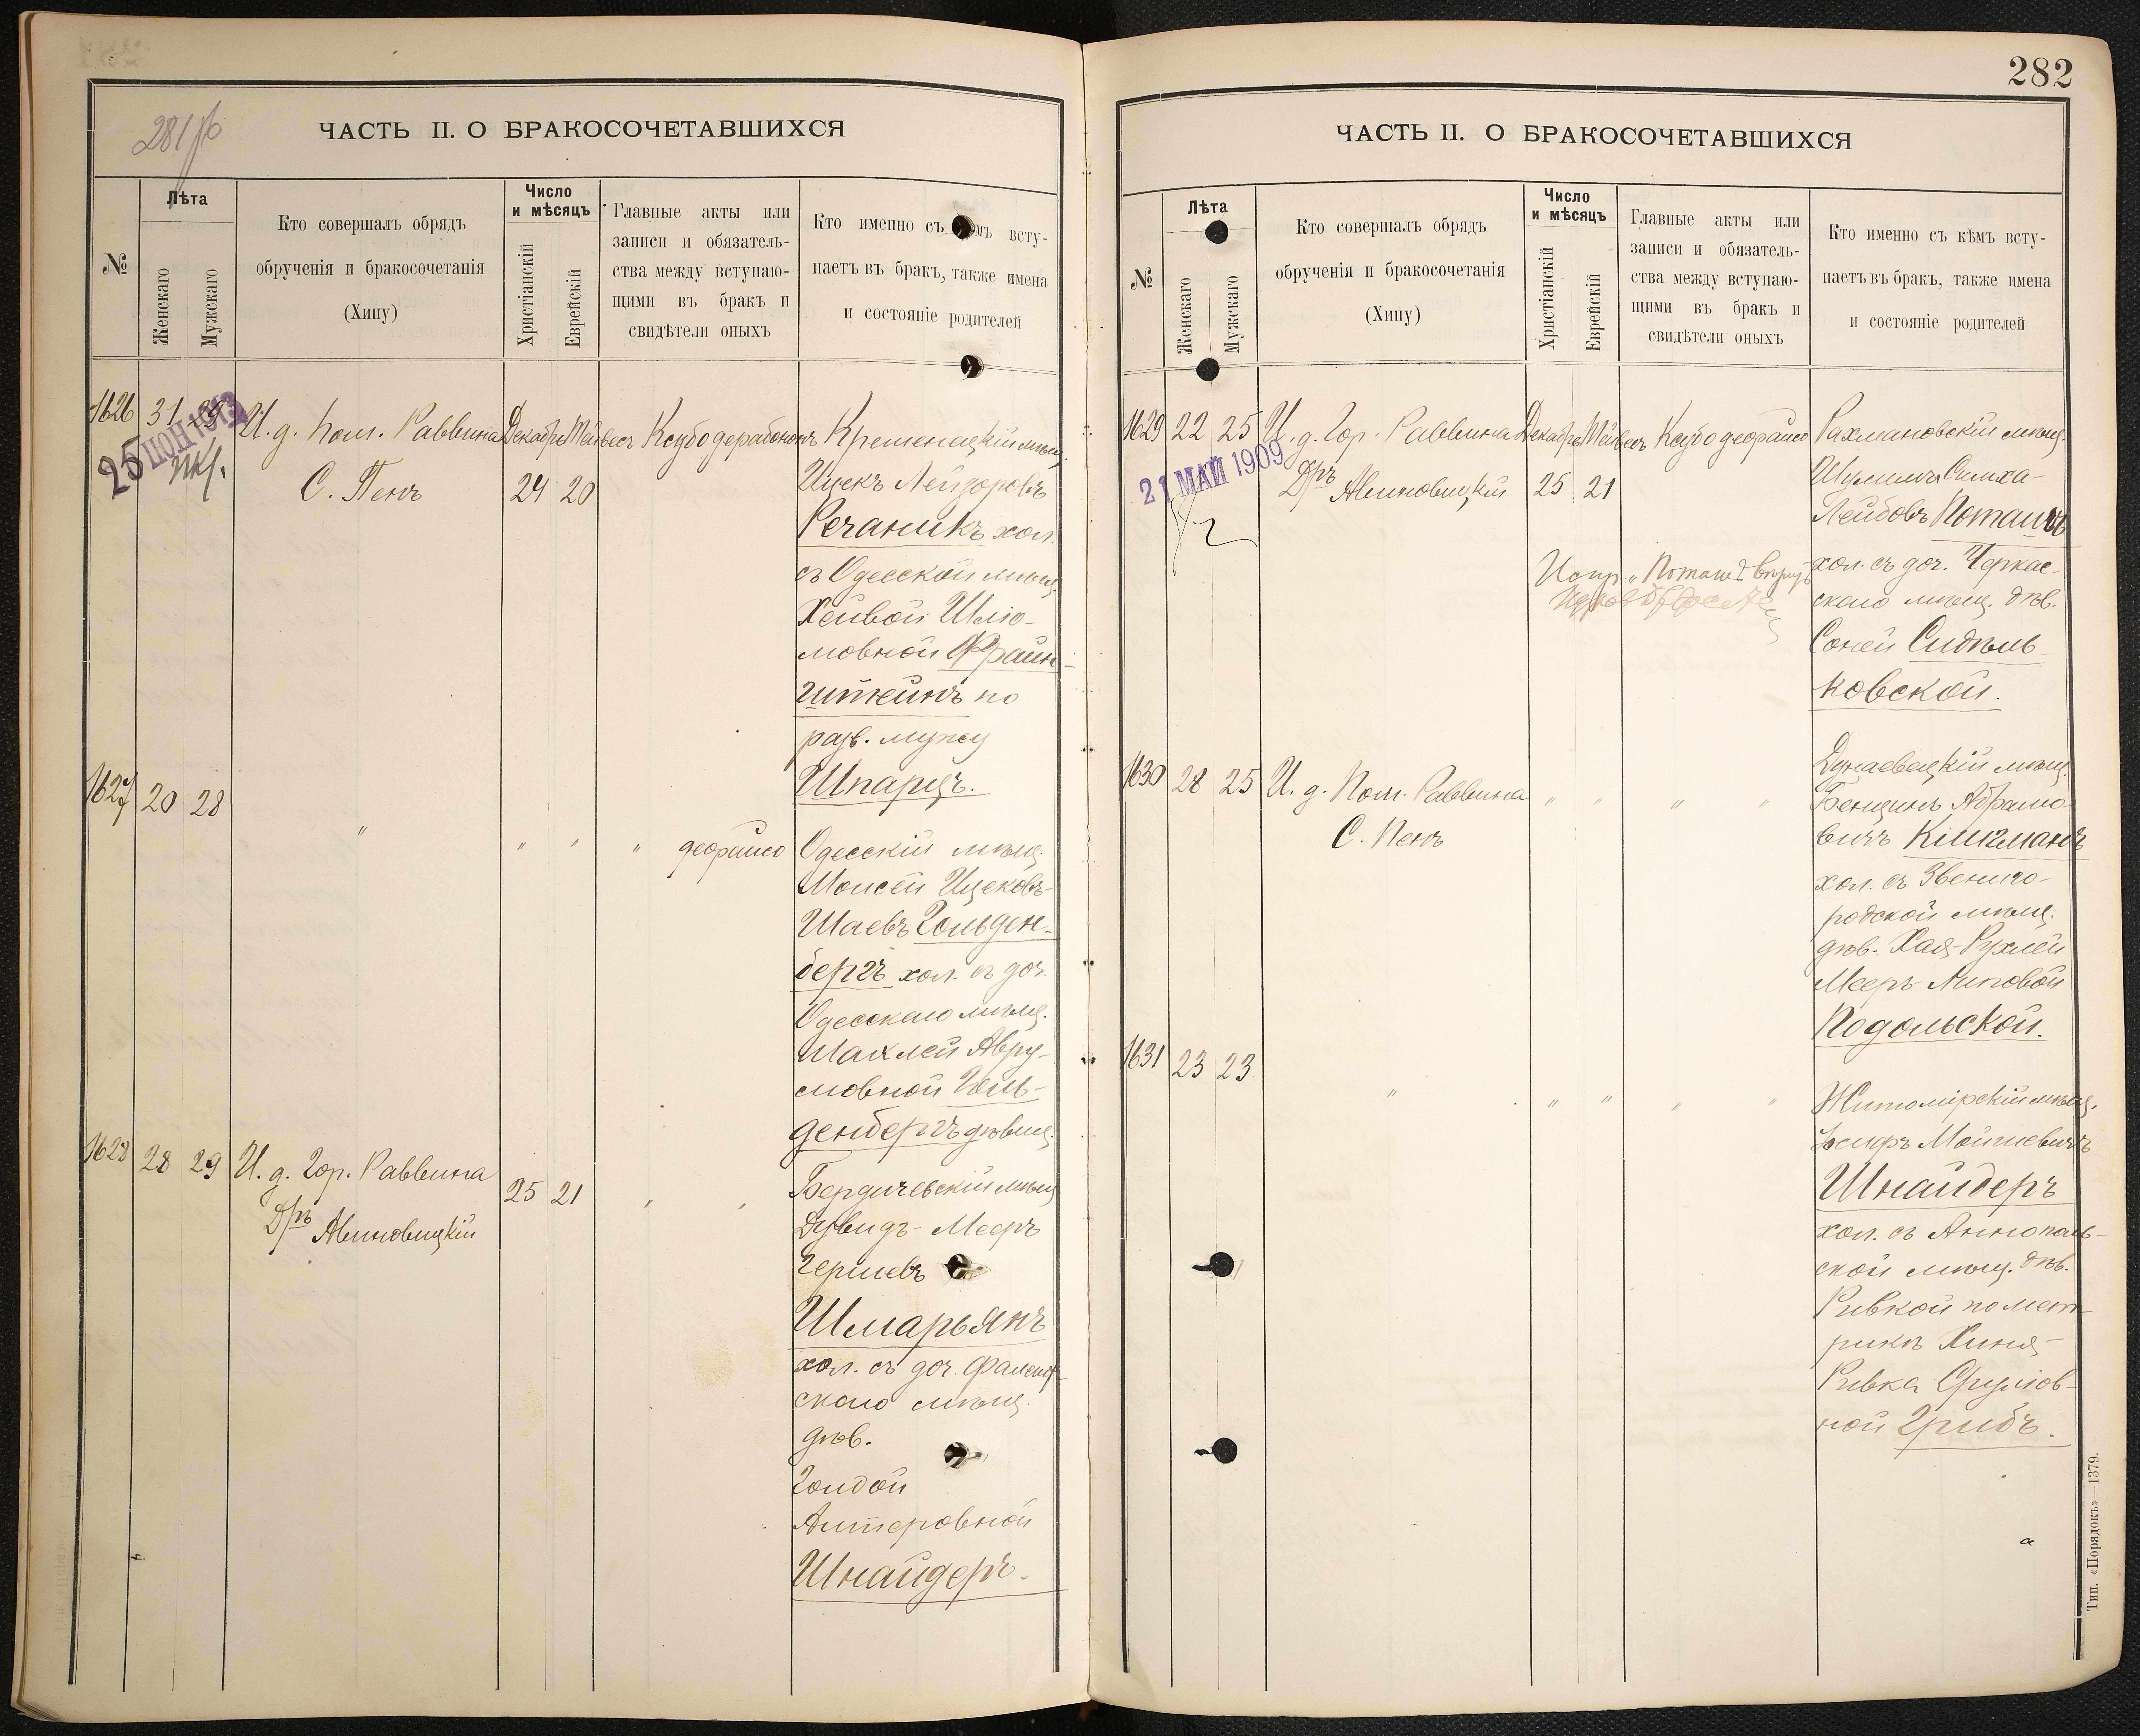 281 об
ЧАСТЬ II. О БРАКОСОЧЕТАВШИХСЯ
№
Лѣта
Женскаго
Мужскаго
Кто совершалъ обрядъ
обрученія и бракосочетанія
(Хипу)
Число
и мѣсяцъ
Христіанскій
Еврейскій
Главные акты или
записи и обязатель-
ства между вступаю-
щими въ бракъ и
свидѣтели оныхъ
Кто именно съ мъ всту-
паетъ въ бракъ, также имена
и состояніе родителей
1626 31 29
25 ІЮН 1913
И. д. Пом. Раввина
С. Пенъ
Декабрь Тейвесъ
24 20
Ксубо дерабононъ
Кременецкій мѣщ.
Ицекъ Лейзоровъ
Речаникъ хол.
съ Одесской мѣщ.
Хейвой Шліо-
мовной Файн-
штейнъ по
разв. мужу
Шпарцъ.
1627 20 28
" " " " деорайсо
Одесскій мѣщ.
Моисей Ицековъ-
Шаевъ Гольден-
бергъ хол. съ доч.
Одесскаго мѣщ.
Махлей Авру-
мовной Голь-
денбергъ дѣвиц.
1628 28 29
И. д. Гор. Раввина
Д/ръ Авиновицкій
25 21
" "
Бердичевскій мѣщ.
Дувидъ-Мееръ
Гершевъ
Шмарьянъ
хол. съ доч.
скаго мѣщ.
дѣв.
Голдой
Антеровной
Шнайдеръ.
282
ЧАСТЬ II. О БРАКОСОЧЕТАВШИХСЯ
№
Лѣта
Женскаго
Мужскаго
Кто совершалъ обрядъ
обрученія и бракосочетанія
(Хипу)
Число
и мѣсяцъ
Христіанскій
Еврейскій
Главные акты или
записи и обязатель-
ства между вступаю-
щими въ бракъ и
свидѣтели оныхъ
Кто именно съ кѣмъ всту-
паетъ въ бракъ, также имена
и состояніе родителей
1629 22 25
21 МАЙ 1909
И. д. Гор. Раввина
Д/ръ Авиновицкій
Декабрь Тейвесъ
25 21
Ксубо деорайсо
Испр. „Поташъ" вѣрить
Рахмановскій мѣщ.
Шулимъ Симха-
Лейбовъ Поташъ
хол. съ доч. Черкас-
скаго мѣщ. дѣв.
Соней Сидѣль-
ковской.
1630 28 25
И. д. Пом. Раввина
С. Пенъ
" " " "
Дунаевецкій мѣщ.
Бенціинъ Абрамо-
вичъ Клигманъ
хол. съ Звениго-
родской мѣщ.
дѣв. Хая-Рухлей
Мееръ-Липовой
Подольской.
1631 23 23
" " " " "
Житомірскій мѣщ.
Іосифъ Мойшевичъ
Шнайдеръ
хол. съ Аннополь-
ской мѣщ. дѣв.
Ривкой по мет-
рикѣ Хиня-
Ривка Срулов-
ной Грибъ.
Тип. «Порядокъ»—1379.